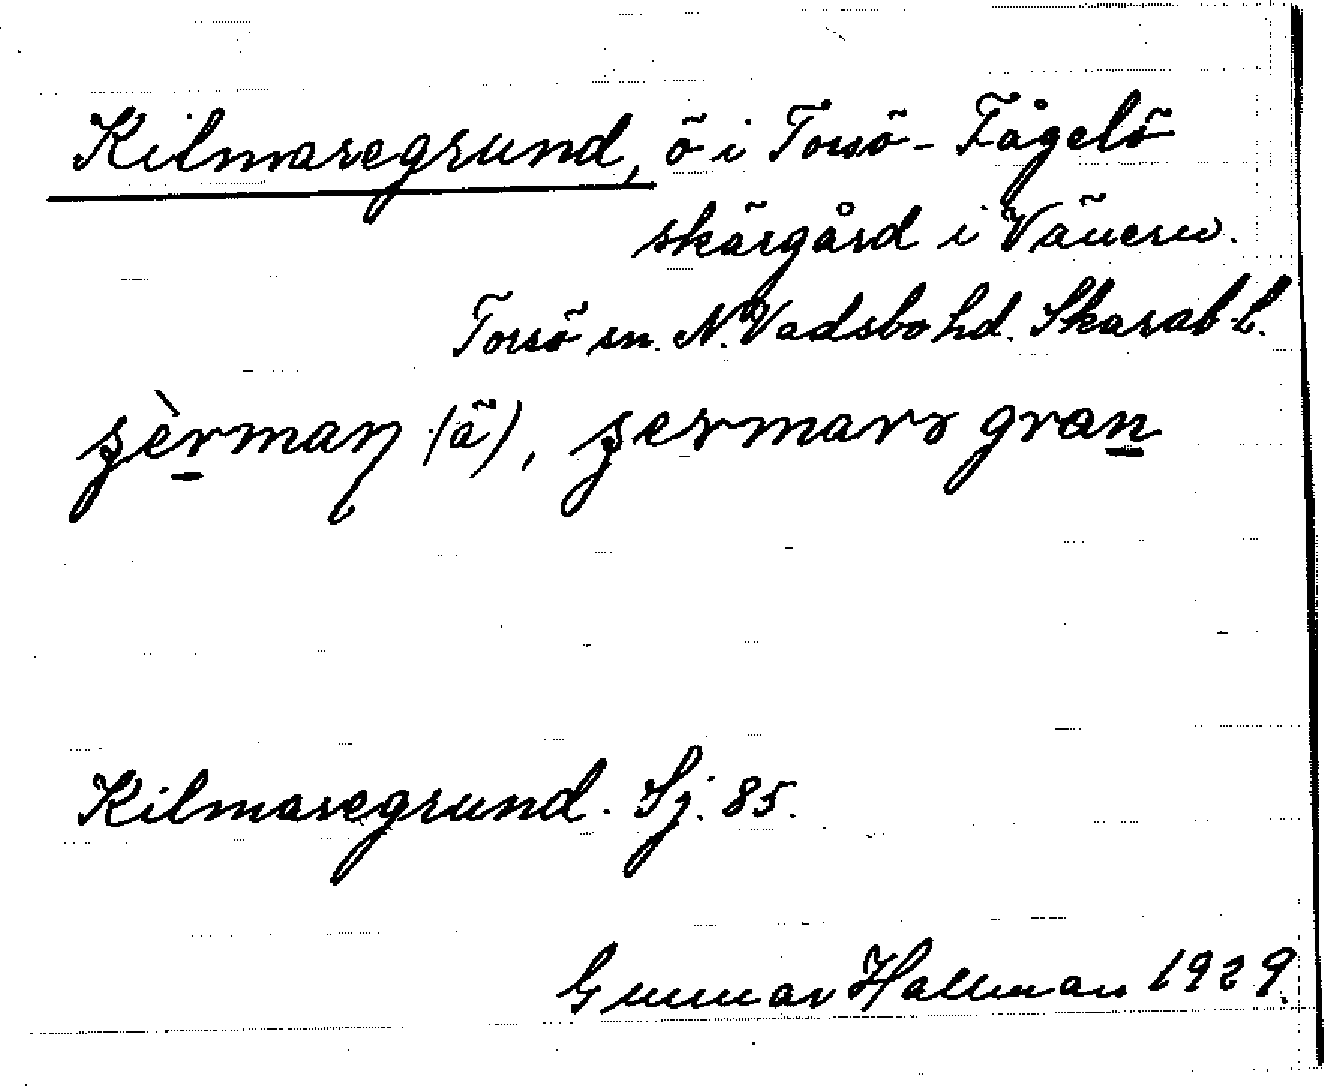 Kilmaregrund, ö i Torsö-Fågelö
skärgård i Vänern.
Torsö sn. N. Vadsbo hd. Skarab. l.
(ä), gran
Kilmaregrund. Sj. 85.
Gunnar Hallman 1929.